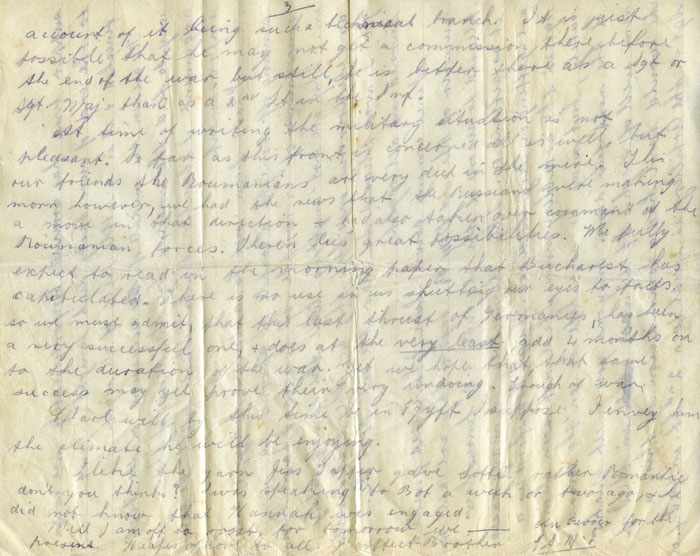 3
account of it being such a technical branch. It is just
possible that he may not get a commission there before
the end of the war, but still, he is better there as a Sgt or
Sgt. Maj. than as a 2nd Lt in the Inf.
At time of writing the military situation is not
pleasant. So far as this front is concerned all is well, but
our friends the Roumanians are very deep in the mire. This
morn however, we had the news that the Russians were making
a move in that direction & had also taken over command of the
Roumanian forces. Therein lies great possibilities. We fully
expect to read in the morning paper that Bucharest has
capitulated. There is no use in us shutting our eyes to facts,
so we must admit, that this last thrust of Germanies, has been
a very successful one, & does at the very least add 4 months on
to the duration of the war. Yet we hope that that same
success may yet prove their very undoing. Enough of war.
will by this time be in Egypt I suppose. I envy him
the climate he will be enjoying.
I like the yarn gave rather Romantic
don't you think? I was speaking to Bob a week or two ago, & he
did not know that Hannah was engaged.
Well I am off to for tomorrow we for the
present. Heaps of love to all Brother